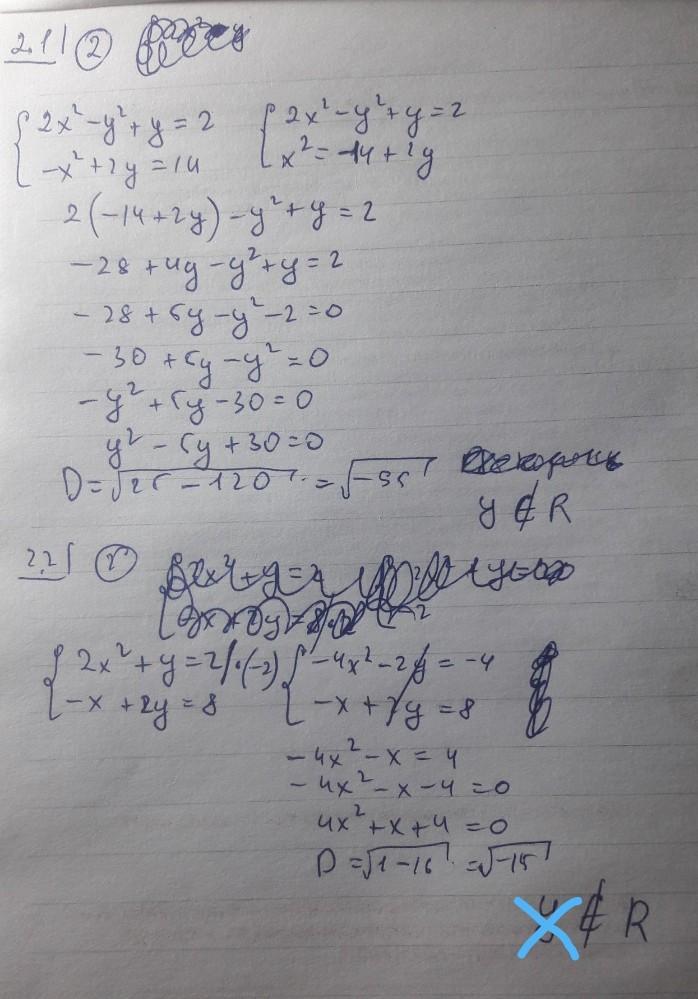 2.1 | 2
2x² - y² + y = 2    2x² - y² + y = 2
-x² + 2y = 14    x² = -14 + 2y
2(-14 + 2y) - y² + y = 2
-28 + 4y - y² + y = 2
-28 + 5y - y² - 2 = 0
-30 + 5y - y² = 0
-y² + 5y - 30 = 0
y² - 5y + 30 = 0
D = √25 - 120 = √-95
y ∉ R
2.2 |
2x² + y = 2 | · (-2)    -4x² - 2y = -4
-x + 2y = 8    -x + 2y = 8
-4x² - x = 4
-4x² - x - 4 = 0
4x² + x + 4 = 0
D = √1 - 16 = √-15
x ∉ R